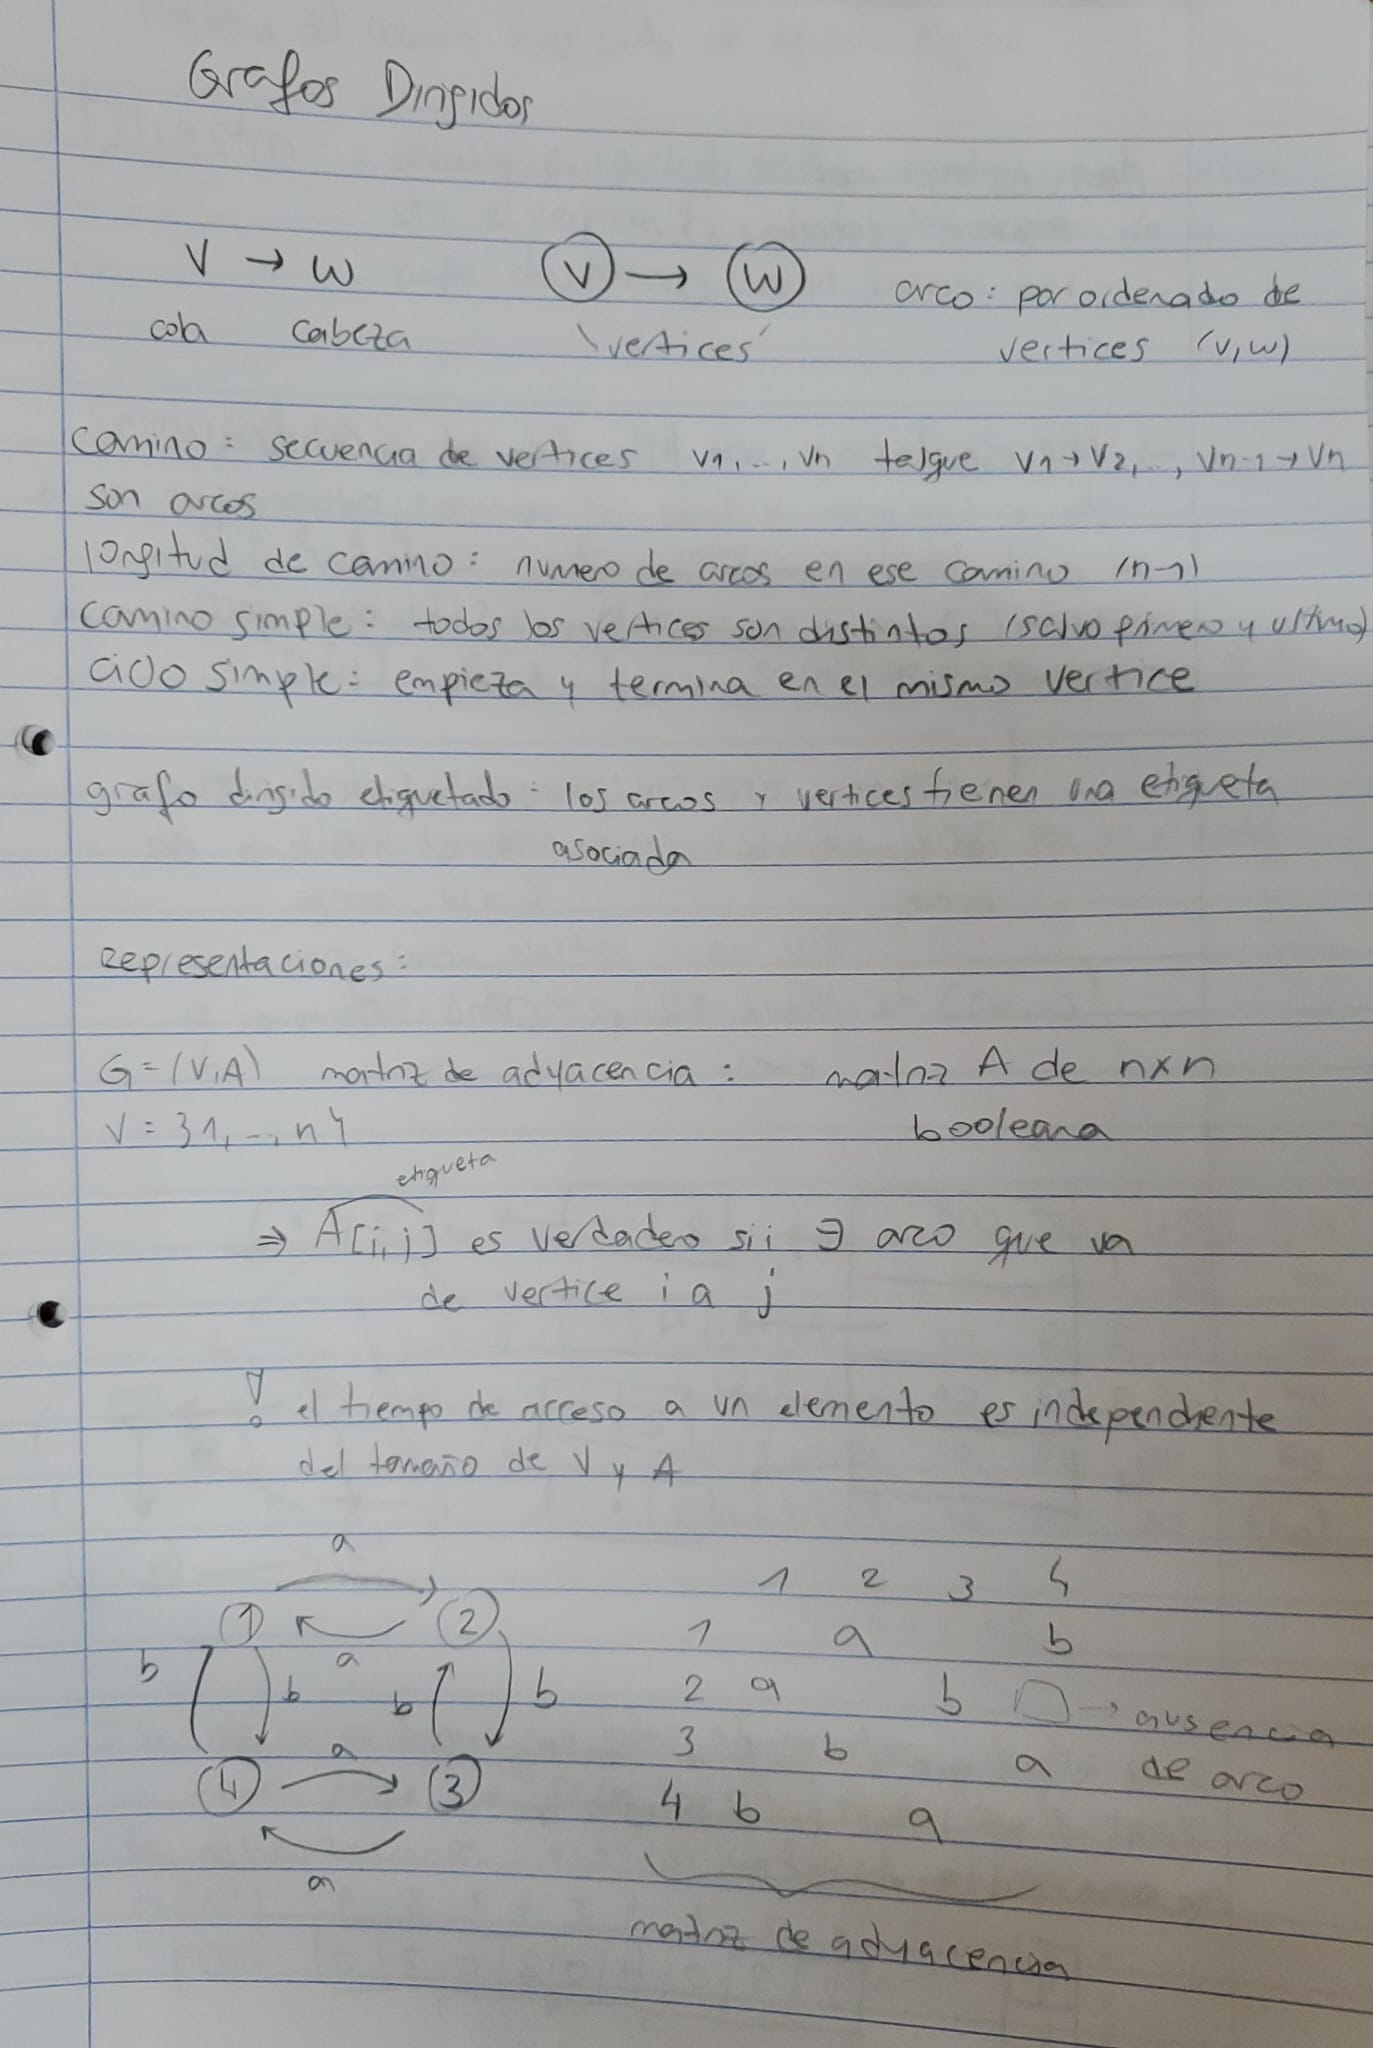 Grafos Dirigidos
V → W
cola cabeza
V → W
vertices
arco: par ordenado de
vertices (v,w)
camino: secuencia de vertices v1,...,vn talque v1→v2,..., vn-1→vn
son arcos
longitud de camino: numero de arcos en ese camino (n-1)
camino simple: todos los vertices son distintos (salvo primero y ultimo)
ciclo simple: empieza y termina en el mismo vertice
grafo dirigido etiquetado: los arcos y vertices tienen una etiqueta
asociada
representaciones:
G=(V,A) matriz de adyacencia: matriz A de n×n
V = {1,..,n} booleana
etiqueta
⇒ A[i,j] es verdadero sii ∃ arco que va
de vertice i a j
! el tiempo de acceso a un elemento es independiente
del tamaño de V y A
a
1 2
a
b b b b
a
4 3
a
1 2 3 4
1 a b
2 a b → ausencia
3 b a de arco
4 b a
matriz de adyacencia